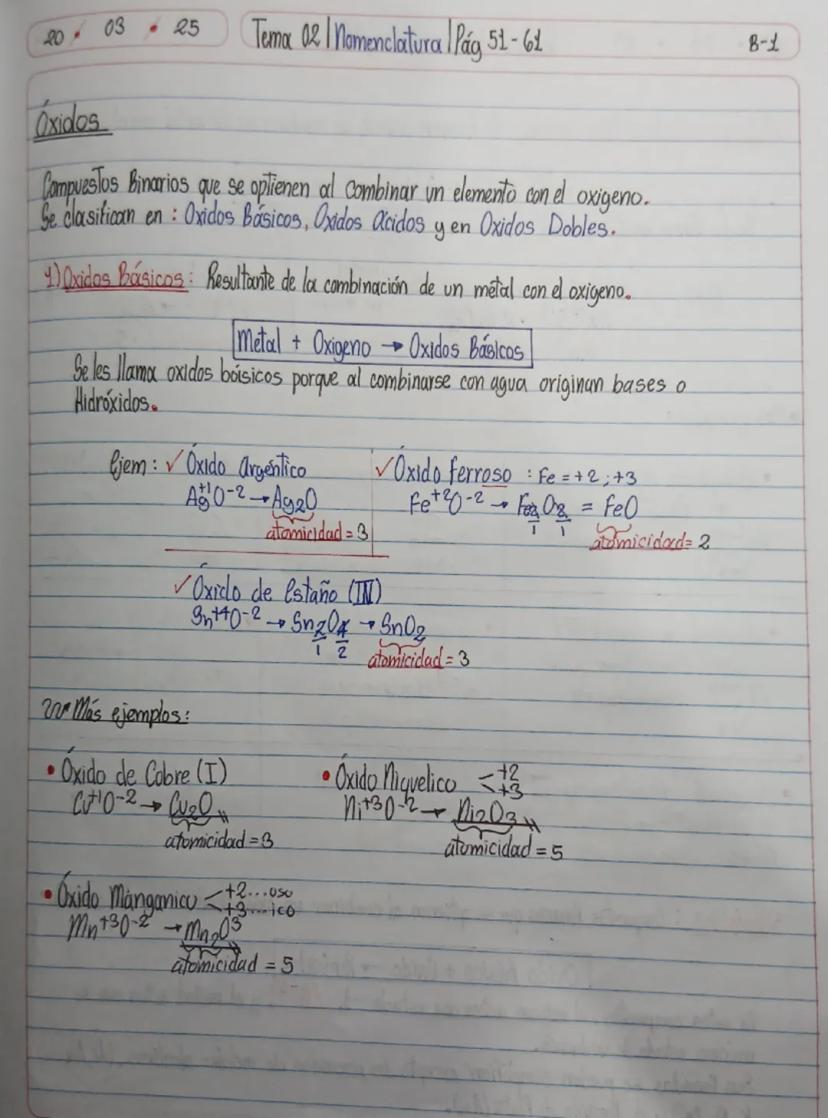 20 • 03 • 25
Tema 02 | Nomenclatura | Pág 51-61
B-1
Óxidos
Compuestos Binarios que se optienen al combinar un elemento con el oxigeno.
Se clasifican en : Oxidos Básicos, Oxidos ácidos y en Oxidos Dobles.
1) Oxidos Básicos : Resultante de la combinación de un metal con el oxigeno.
Metal + Oxigeno → Oxidos Básicos
Se les llama oxidos báisicos porque al combinarse con agua originan bases o
Hidróxidos.
Ejem : ✓ Óxido argéntico
Ag+1O-2 → Ag2O
atomicidad = 3
✓ Óxido ferroso : Fe = +2 ; +3
Fe+2O-2 → Fe2O2 = FeO
1 1
atomicidad = 2
✓ Óxido de Estaño (IV)
Sn+4O-2 → Sn2O4 → SnO2
1 2
atomicidad = 3
Más ejemplos:
• Óxido de Cobre (I)
Cu+1O-2 → Cu2O
atomicidad = 3
• Óxido Niquelico < +2
+3
Ni+3O-2 → Ni2O3
atomicidad = 5
• Óxido Mánganico < +2...oso
+3...ico
Mn+3O-2 → Mn2O3
atomicidad = 5